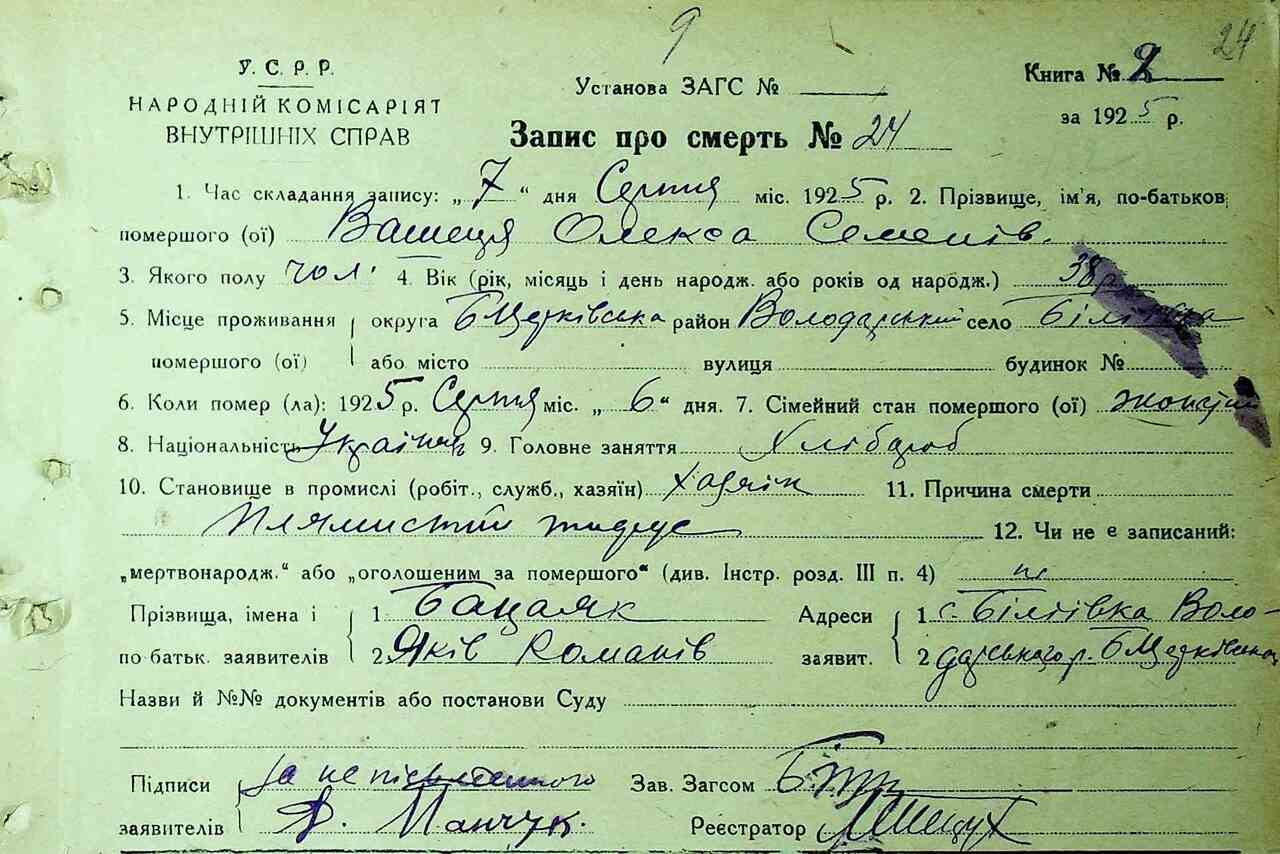 9
24
У. С. Р. Р.
НАРОДНІЙ КОМІСАРІЯТ
ВНУТРІШНІХ СПРАВ
Установа ЗАГС №
Книга № 2
за 1925 р.
Запис про смерть № 24
1. Час складання запису: „7“ дня Серпня міс. 1925 р. 2. Прізвище, ім'я, по-батьков.
помершого (ої) Олекса Семенів.
3. Якого полу чол. 4. Вік (рік, місяць і день народж. або років од народж.) 38 р.
5. Місце проживання округа БЦерківська район Володарський село Біліївка
помершого (ої) або місто вулиця будинок №
6. Коли помер (ла): 1925 р. Серпня міс. „6“ дня. 7. Сімейний стан помершого (ої)
8. Національність Українец 9. Головне заняття Хлібороб
10. Становище в промислі (робіт., служб., хазяїн) Хазяін 11. Причина смерти
Плямистий тифус 12. Чи не є записаний:
„мертвонародж.“ або „оголошеним за помершого“ (див. Інстр. розд. III п. 4) ні
Прізвища, імена і 1 Адреси 1 с. Біліївка Воло-
по батьк. заявителів 2 Яків Романів заявит. 2 дарського р. БЦерківська
Назви й №№ документів або постанови Суду
Підписи За не письменного Зав. Загсом
заявителів Панчук. Реєстратор